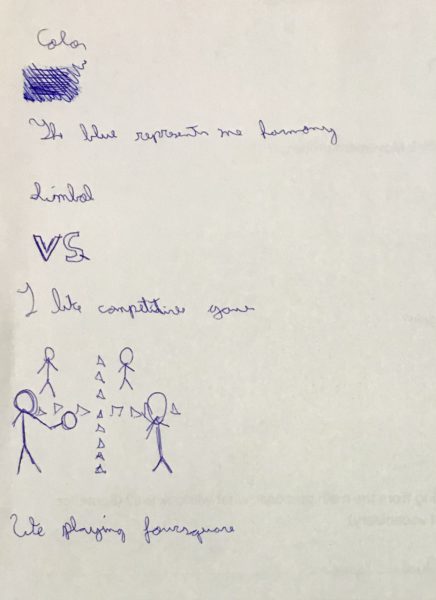 Color
The blue represents me harmony
Simbol
VS.
I like competitive game
like playing foursquare